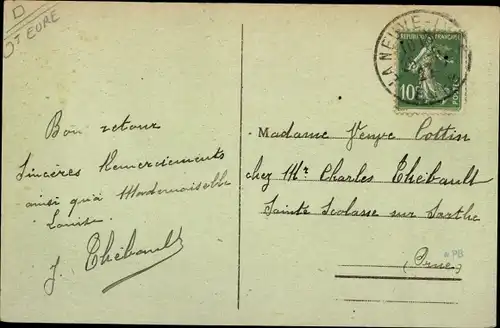 D
Dt EURE
LA NEUVE-LYRE
REPUBLIQUE FRANÇAISE
10c
POSTES
Bon retour
Sincères Remerciements
ainsi qu'à Mademoiselle
Louise.
J. Thébault
Madame Veuve Cottin
chez Mr Charles Thébault
Sainte Scolasse sur Sarthe
(Orne)
PB